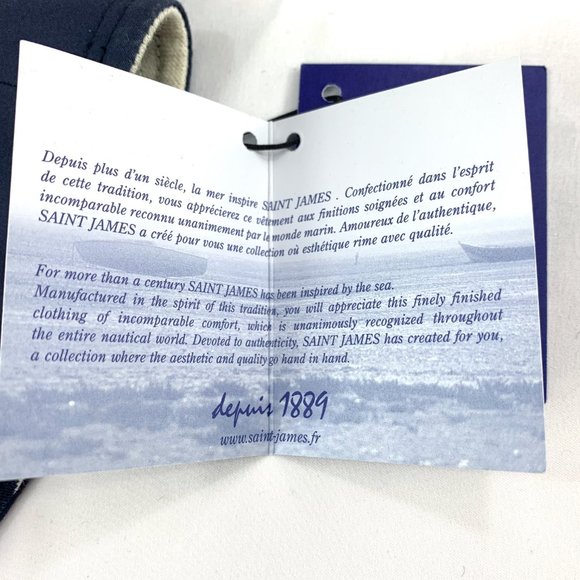 Depuis plus d'un siècle, la mer inspire SAINT JAMES . Confectionné dans l'esprit
de cette tradition, vous apprécierez ce vêtement aux finitions soignées et au confort
incomparable reconnu unanimement par le monde marin. Amoureux de l'authentique,
SAINT JAMES a créé pour vous une collection où esthétique rime avec qualité.
For more than a century SAINT JAMES has been inspired by the sea.
Manufactured in the spirit of this tradition, you will appreciate this finely finished
clothing of incomparable comfort, which is unanimously recognized throughout
the entire nautical world. Devoted to authenticity, SAINT JAMES has created for you,
a collection where the aesthetic and quality go hand in hand.
depuis 1889
www.saint-james.fr